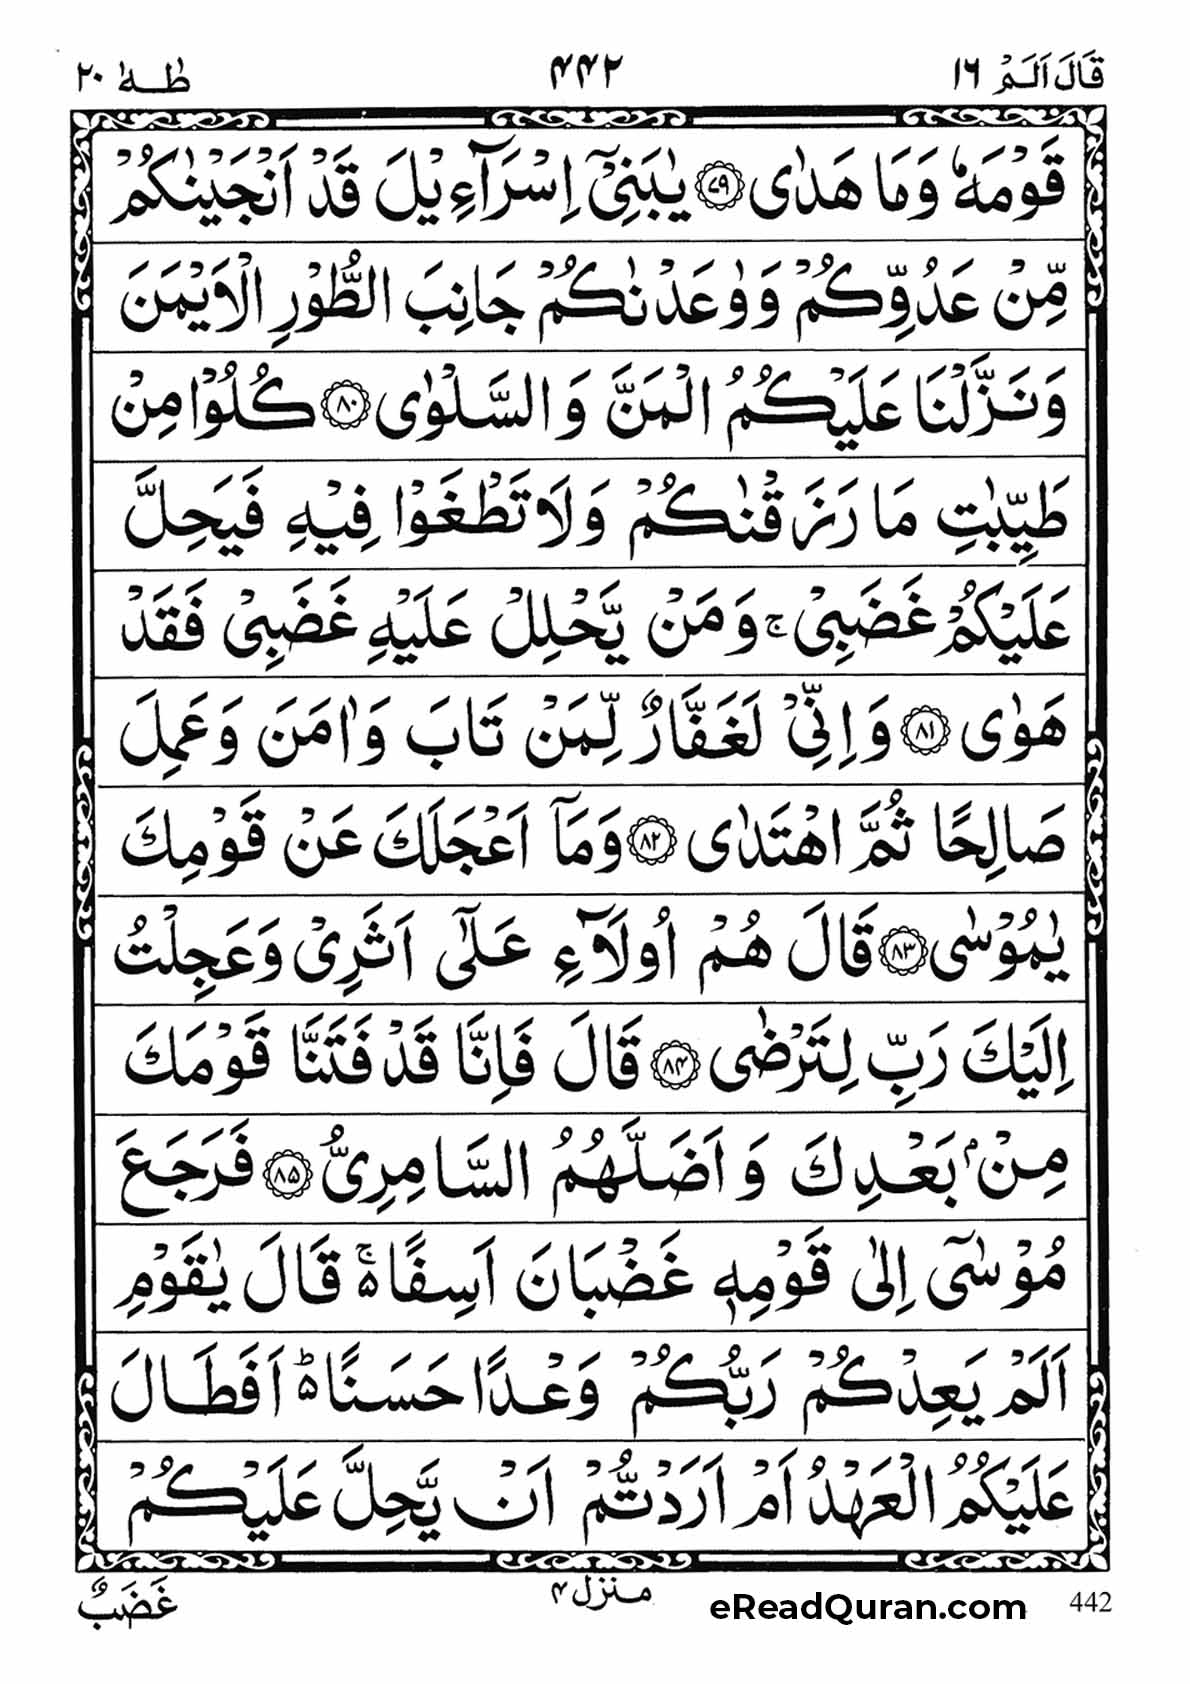 قَالَ اَلَمْ ١٦ ۴۴۲ طٰـهٰ ٢٠
قَوْمَهٗ وَمَا هَدٰى ﴿٧٩﴾ يٰبَنِىْۤ اِسْرَآءِيْلَ قَدْ اَنْجَيْنٰكُمْ
مِّنْ عَدُوِّكُمْ وَوٰعَدْنٰكُمْ جَانِبَ الطُّوْرِ الْاَيْمَنَ
وَنَزَّلْنَا عَلَيْكُمُ الْمَنَّ وَالسَّلْوٰى ﴿٨٠﴾ كُلُوْا مِنْ
طَيِّبٰتِ مَا رَزَقْنٰكُمْ وَلَا تَطْغَوْا فِيْهِ فَيَحِلَّ
عَلَيْكُمْ غَضَبِىْ ۚ وَمَنْ يَّحْلِلْ عَلَيْهِ غَضَبِىْ فَقَدْ
هَوٰى ﴿٨١﴾ وَاِنِّىْ لَغَفَّارٌ لِّمَنْ تَابَ وَاٰمَنَ وَعَمِلَ
صَالِحًا ثُمَّ اهْتَدٰى ﴿٨٢﴾ وَمَاۤ اَعْجَلَكَ عَنْ قَوْمِكَ
يٰمُوْسٰى ﴿٨٣﴾ قَالَ هُمْ اُولَآءِ عَلٰٓى اَثَرِىْ وَعَجِلْتُ
اِلَيْكَ رَبِّ لِتَرْضٰى ﴿٨۴﴾ قَالَ فَاِنَّا قَدْ فَتَنَّا قَوْمَكَ
مِنْۢ بَعْدِكَ وَاَضَلَّهُمُ السَّامِرِىُّ ﴿٨۵﴾ فَرَجَعَ
مُوْسٰٓى اِلٰى قَوْمِهٖ غَضْبَانَ اَسِفًا ۬ۚ قَالَ يٰقَوْمِ
اَلَمْ يَعِدْكُمْ رَبُّكُمْ وَعْدًا حَسَنًا ۬ؕ اَفَطَالَ
عَلَيْكُمُ الْعَهْدُ اَمْ اَرَدْتُّمْ اَنْ يَّحِلَّ عَلَيْكُمْ
442 eReadQuran.com منزل ۴ غَضَبٌ